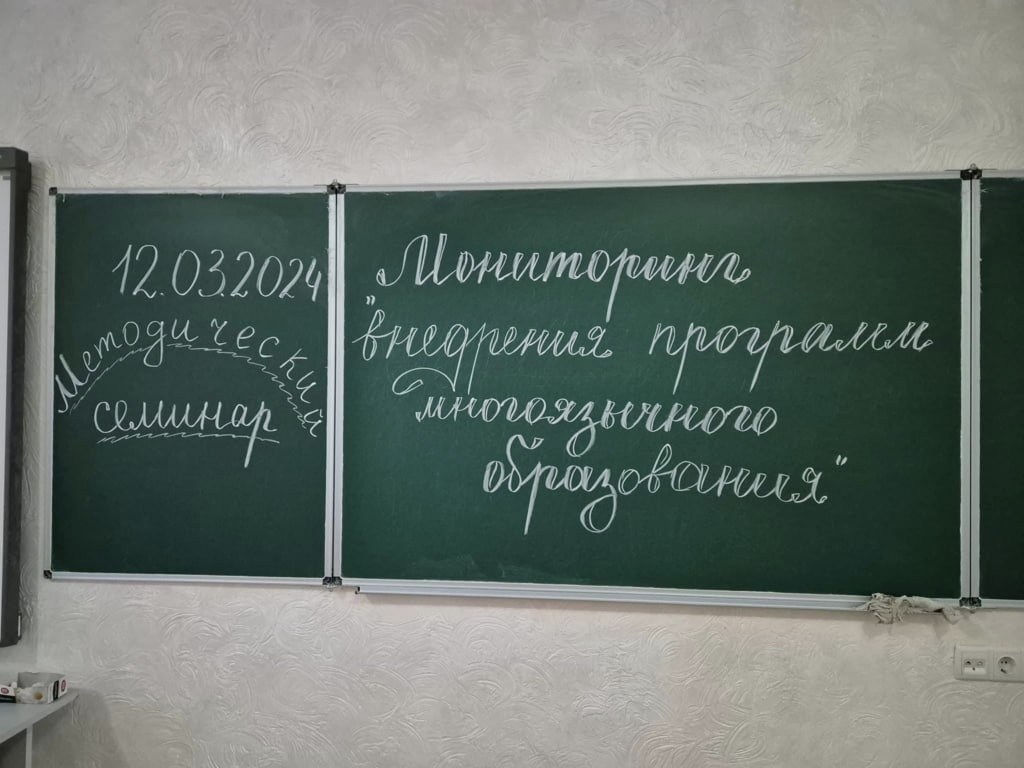 12.03.2024
Методический
семинар
Мониторинг
"внедрения программ
многоязычного
образования"